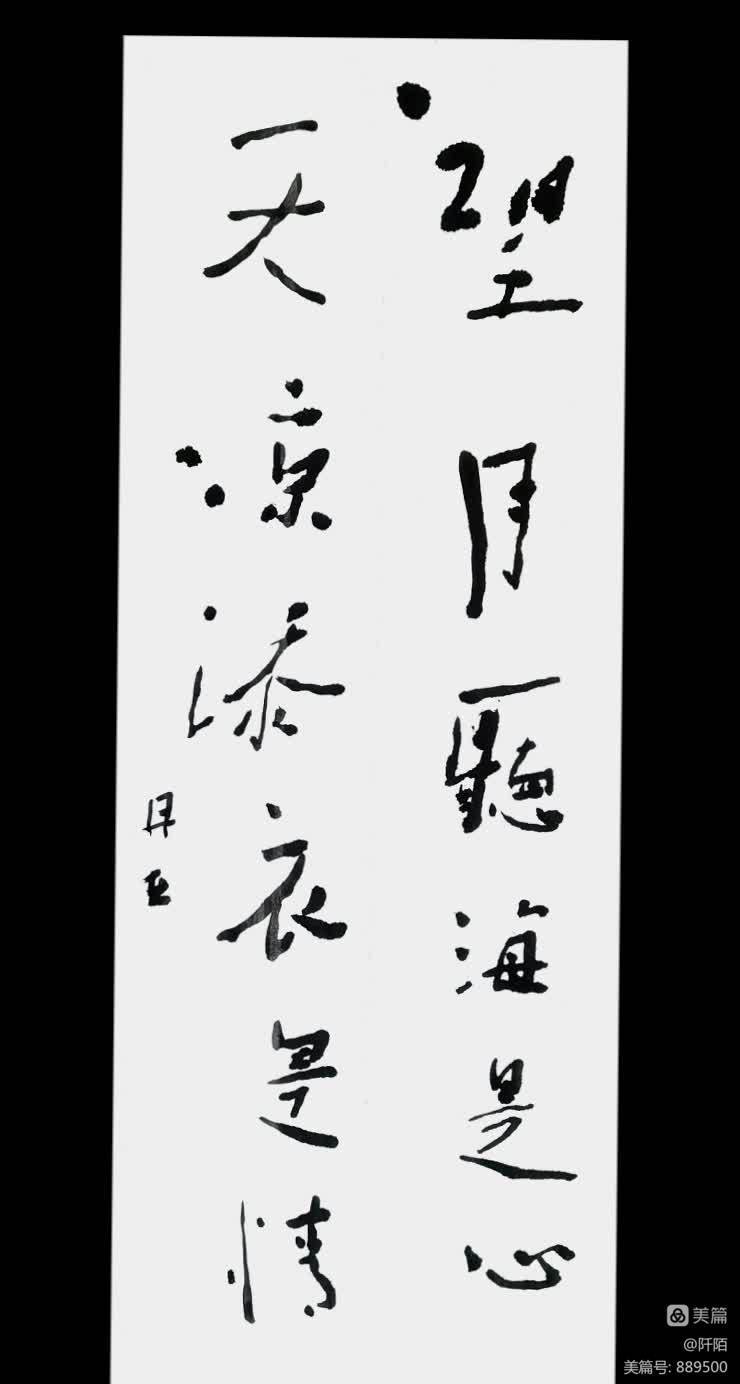 望月聽海是心
天涼添衣是情
美篇
@阡陌
美篇号: 889500